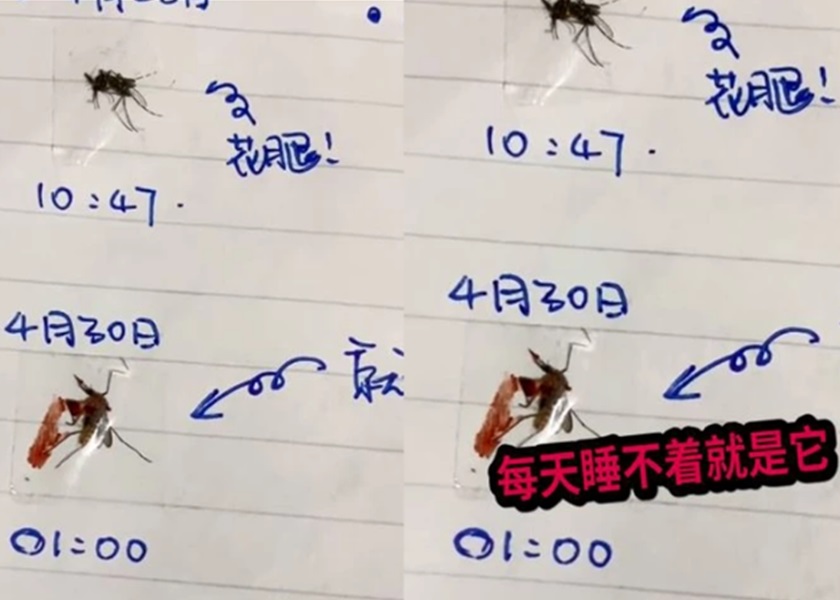 花腿!
10:47.
4月30日
就
01:00
花腿!
10:47.
4月30日
每天睡不着就是它
01:00